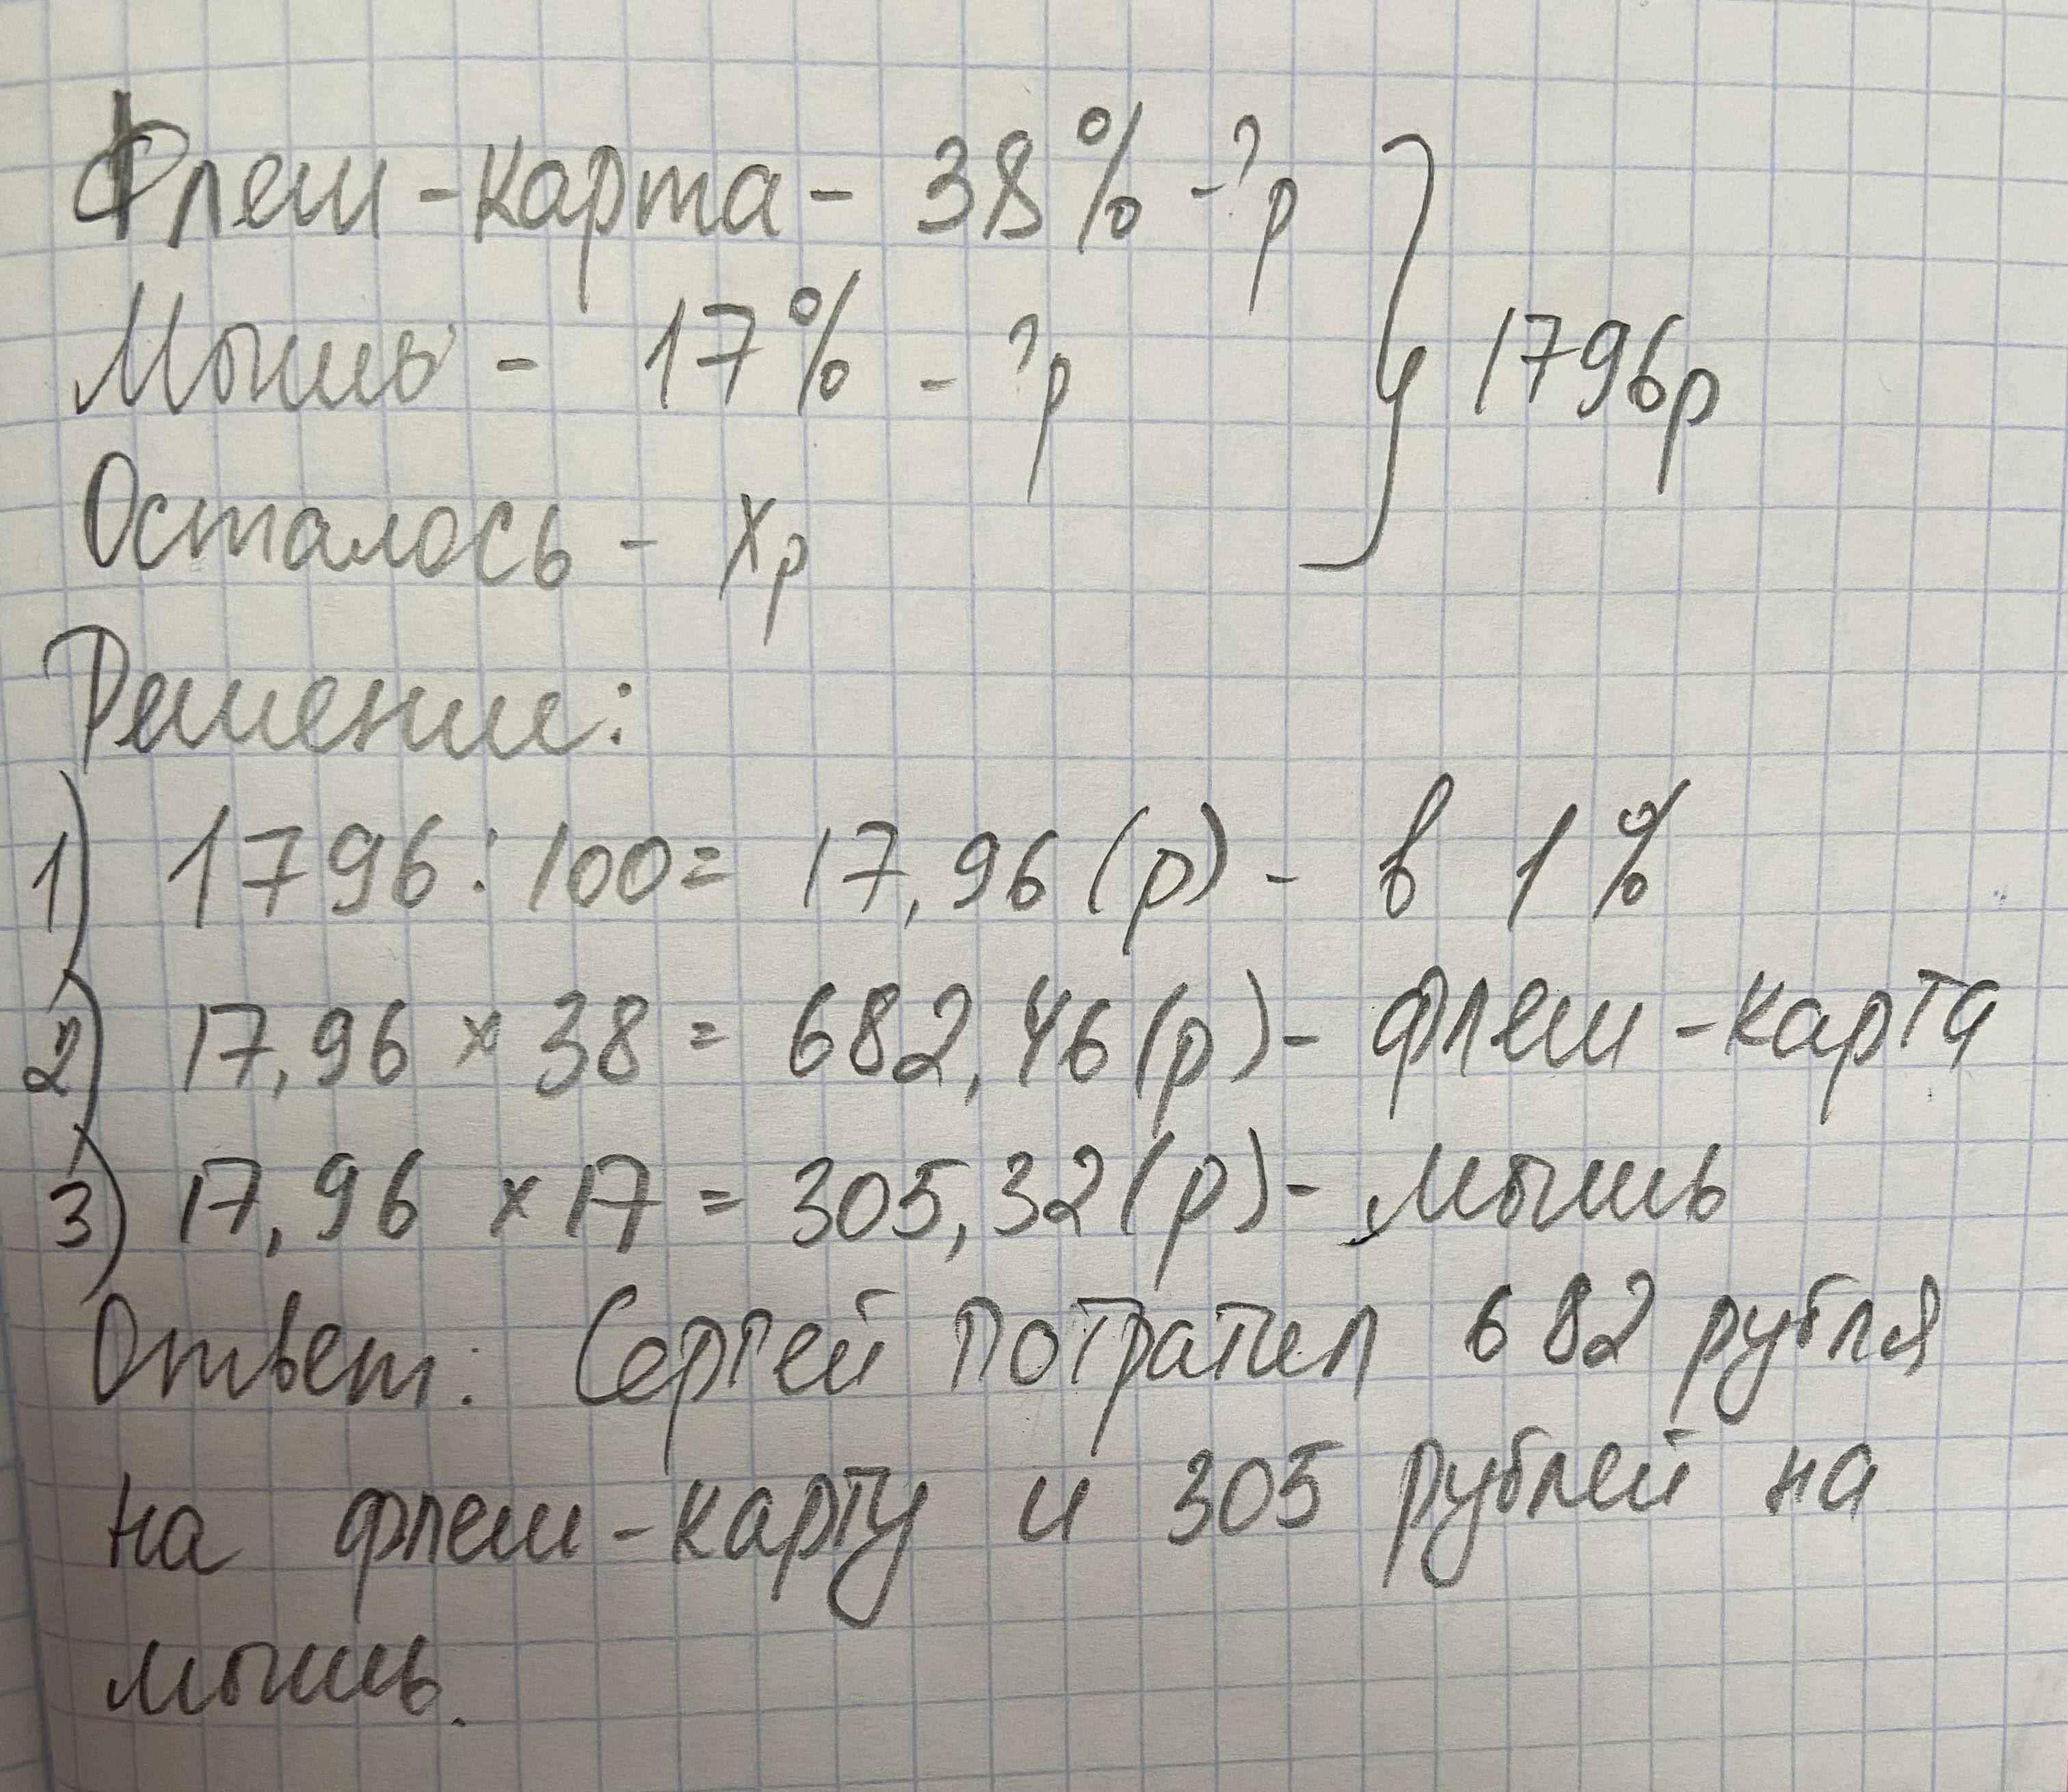 Флеш-карта - 38% - ?р
Мышь - 17% - ?р
1796р
Осталось - xр
Решение:
1) 1796 : 100 = 17,96 (р) - в 1%
2) 17,96 × 38 = 682,46 (р) - флеш-карта
3) 17,96 × 17 = 305,32 (р) - мышь
Ответ: Сергей потратил 682 рубля
на флеш-карту и 305 рублей на
мышь.